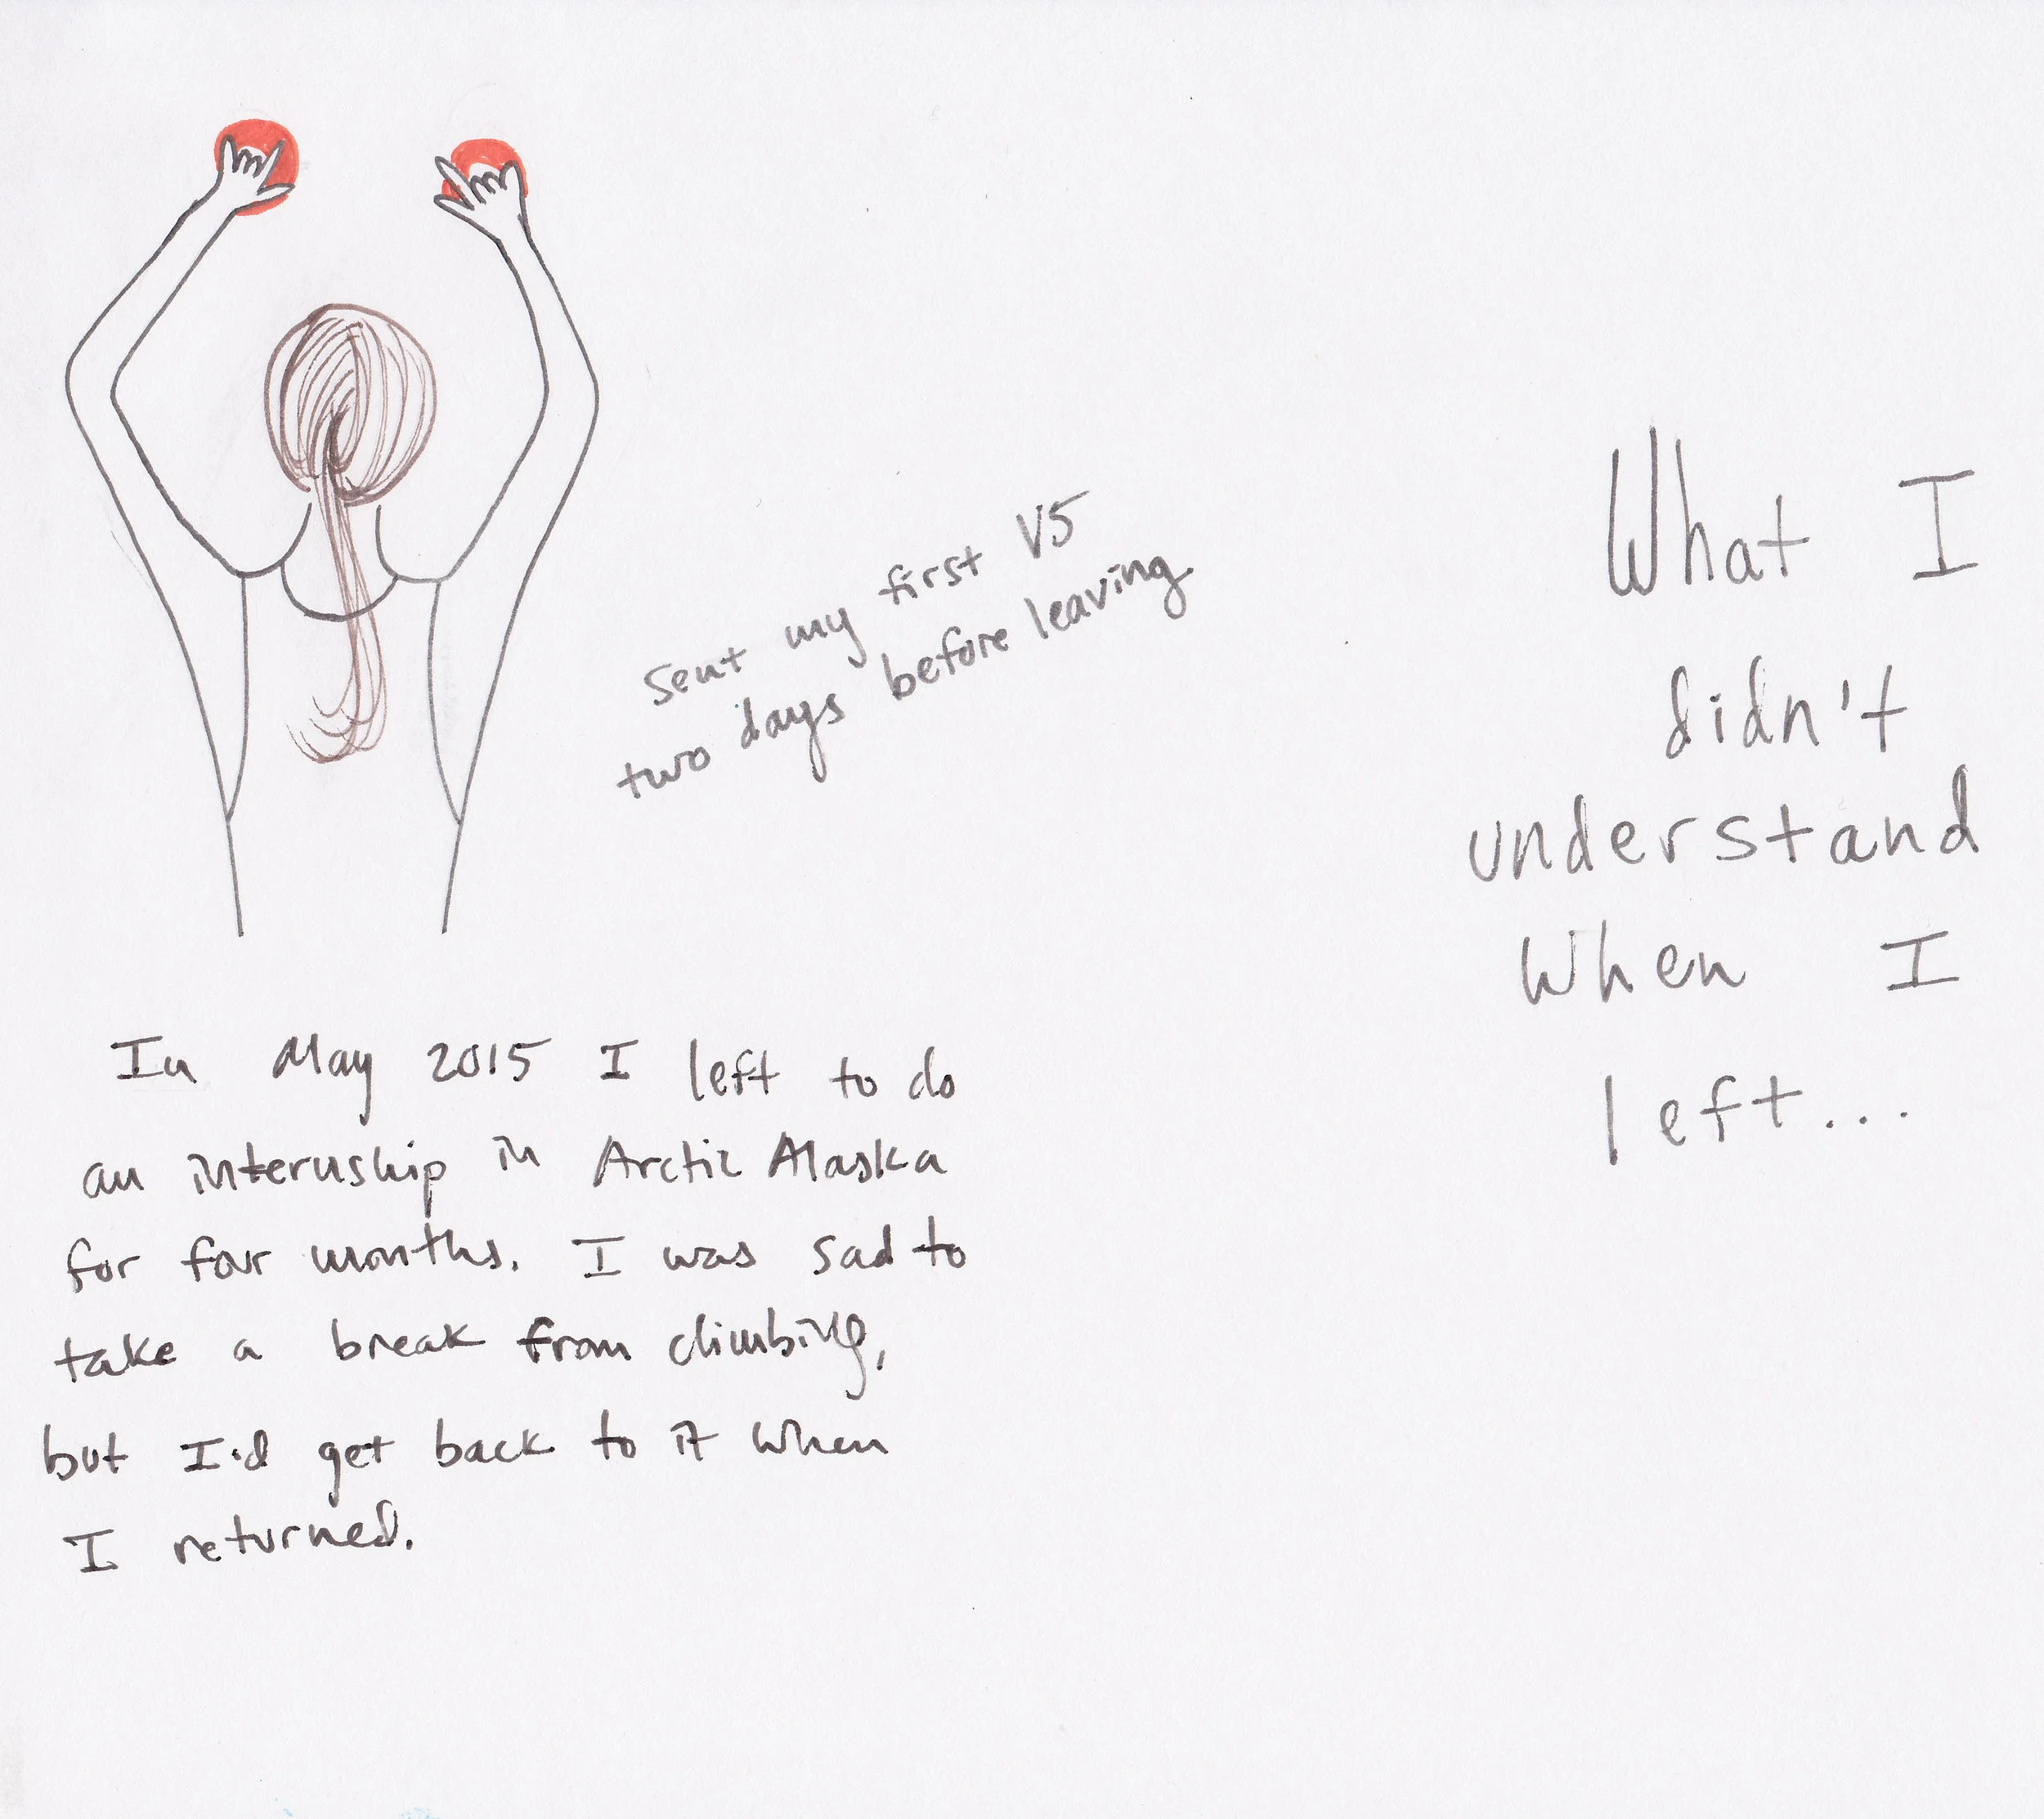 sent my first V5
two days before leaving
In May 2015 I left to do
an internship in Arctic Alaska
for four months. I was sad to
take a break from climbing,
but I'd get back to it when
I returned.
What I
didn't
understand
when I
left...